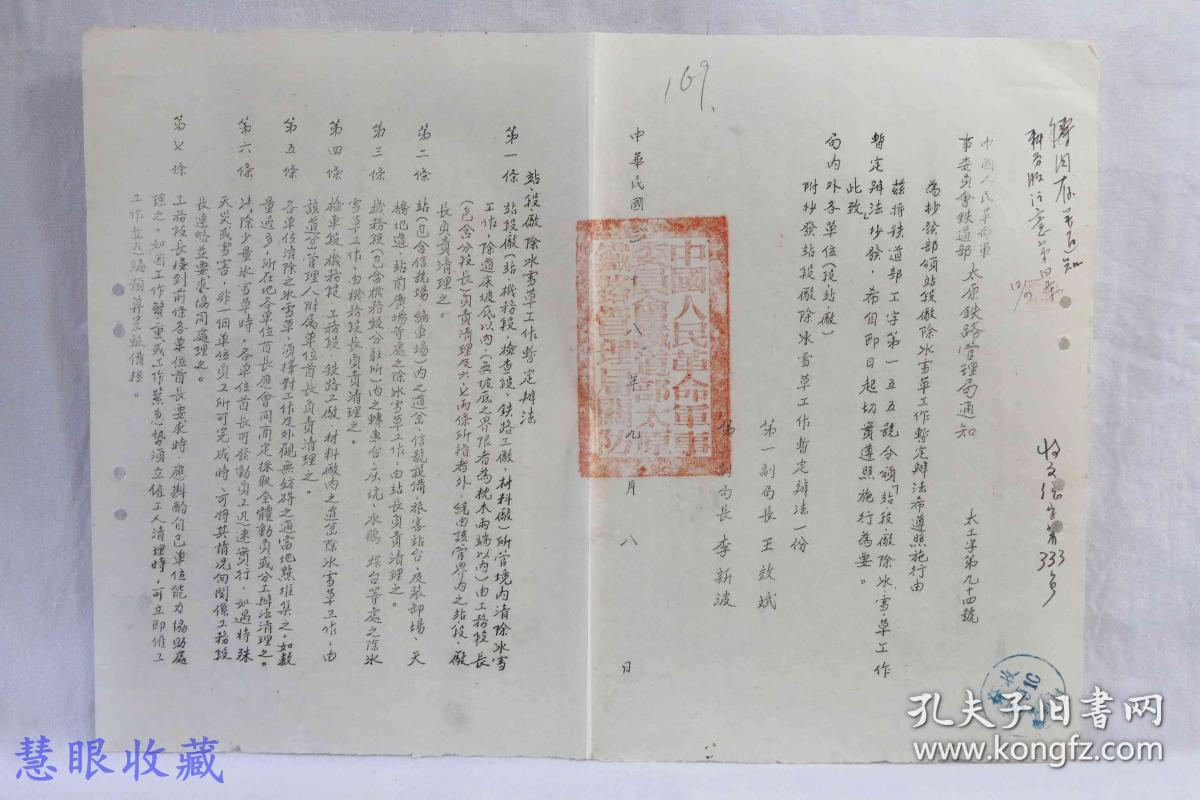 169.
中國人民革命軍
事委員會鉄道部 太原鉄路管理局通知 太工字第九十四號
為抄發部頒站段廠除氷雪草工作暫定辦法希遵照施行由
茲將鉄道部工字第一五五號令頒「站段廠除氷雪草工作
暫定辦法」抄發,希自即日起切實遵照施行為要。
此致
局内外各單位(段站廠)
附抄發站段廠除氷雪草工作暫定辦法一份
第一副局長 王效斌
局長 李新波
中華民國三十八年九月八日
中國人民革命軍事
委員會鐵道部太原
鐵路管理局關防
站、段、廠除氷雪草工作暫定辦法
第一條 站段廠(站、機務段、檢查段、鉄路工廠、材料廠)所管境內清除氷雪
工作除道床坡底以内(無坡底之界限者為枕木兩端以内)由工務段長
(包含分段長)負責清理及六七兩條所指者外,統由該管界内之站段、廠
長負責清理之。
第二條 站(包含信號場、編車場)内之道岔、信號設備、旅客站台、及裝卸場、天
橋地道、站前廣場等處之除氷雪草工作,由站長負責清理之。
第三條 機務段(包含機務段分駐所)内之轉車台、灰坑、水鶴、煤台等處之除氷
雪草工作,由機務段長負責清理之。
第四條 檢車段、機務段、工務段、鉄路工廠、材料廠内之道岔除氷雪草工作,由
該道岔管理人附屬單位首長負責清理之。
第五條 各單位清除之氷雪草,須擇對工作及外觀無妨碍之適當地點堆集之。如數
量過多,所在地各單位首長應會同商定採取全體動員或分工辦法清理之。
第六條 清除少量氷雪草時,各單位首長可發動員工迅速實行,如遇特殊
天災或雪害,非一個單位員工所可完成時,可將其情况向關係工務段
長連絡並要求協同處理之。
第七條 工務段長接到前條各單位首長要求時,應斟酌自己單位能力協助處
理之。如因工作繁重或工作緊急勢須立僱工人清理時,可立即僱工
工作並迅編預算呈報備核。
收
10
孔夫子旧书网
www.kongfz.com
慧眼收藏